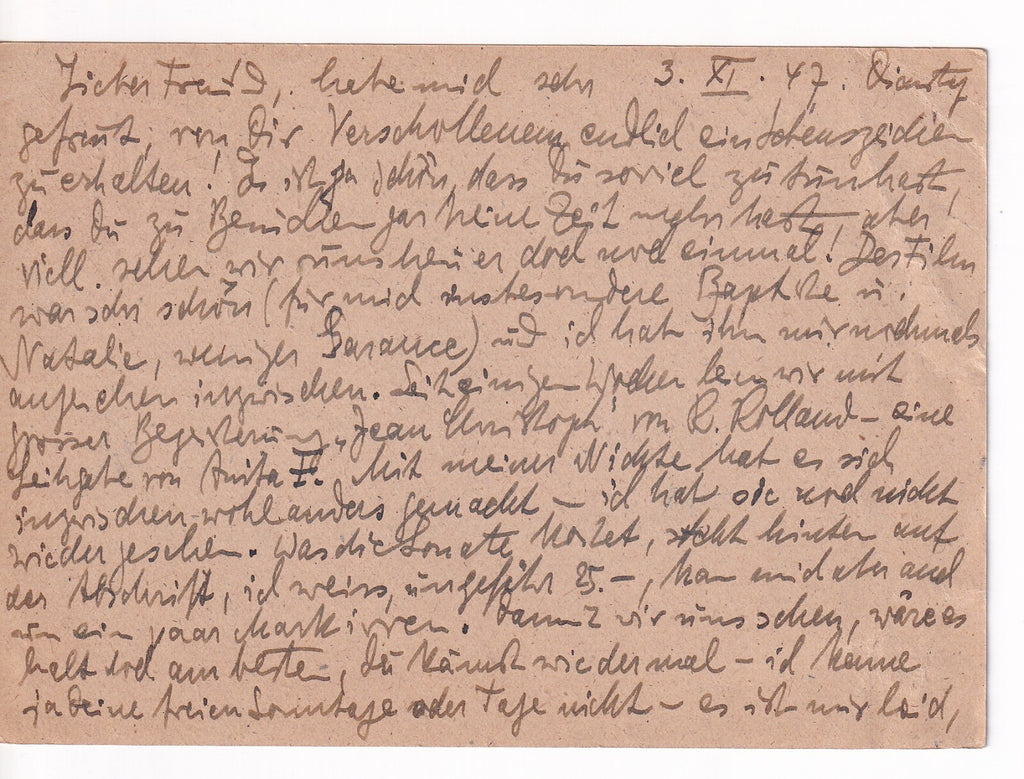 Lieber Freund, habe mich sehr 3. XI. 47. Dienstg
gefreut, von Dir Verschollenem endlich ein Lebenszeichen
zu erhalten! Es ist ja schön, dass Du soviel zu tun hast,
dass Du zu Besuchen gar keine Zeit mehr hast, aber
viell. sehen wir uns heuer doch noch einmal! Der Film
war sehr schön (für mich insbesondere Baptiste u.
Natalie, weniger Garance) und ich hab ihn mir nochmals
angesehen inzwischen. Seit einigen Wochen lesen wir mit
grosser Begeisterung „Jean Christoph" von R. Rolland – eine
Leihgabe von Anita F. Mit meiner Nichte hat es sich
inzwischen wohl anders gemacht – ich hab sie noch nicht
wieder gesehen. Was die Sonate kostet, steht hinten auf
der Abschrift, ich weiss, ungefähr 25.–, kann mich aber auch
um ein paar Mark irren. Damit wir uns sehen, wäre es
halt doch am besten, Du kämst wieder mal – ich kenne
ja Deine freien Sonntage oder Tage nicht – es ist mir leid,